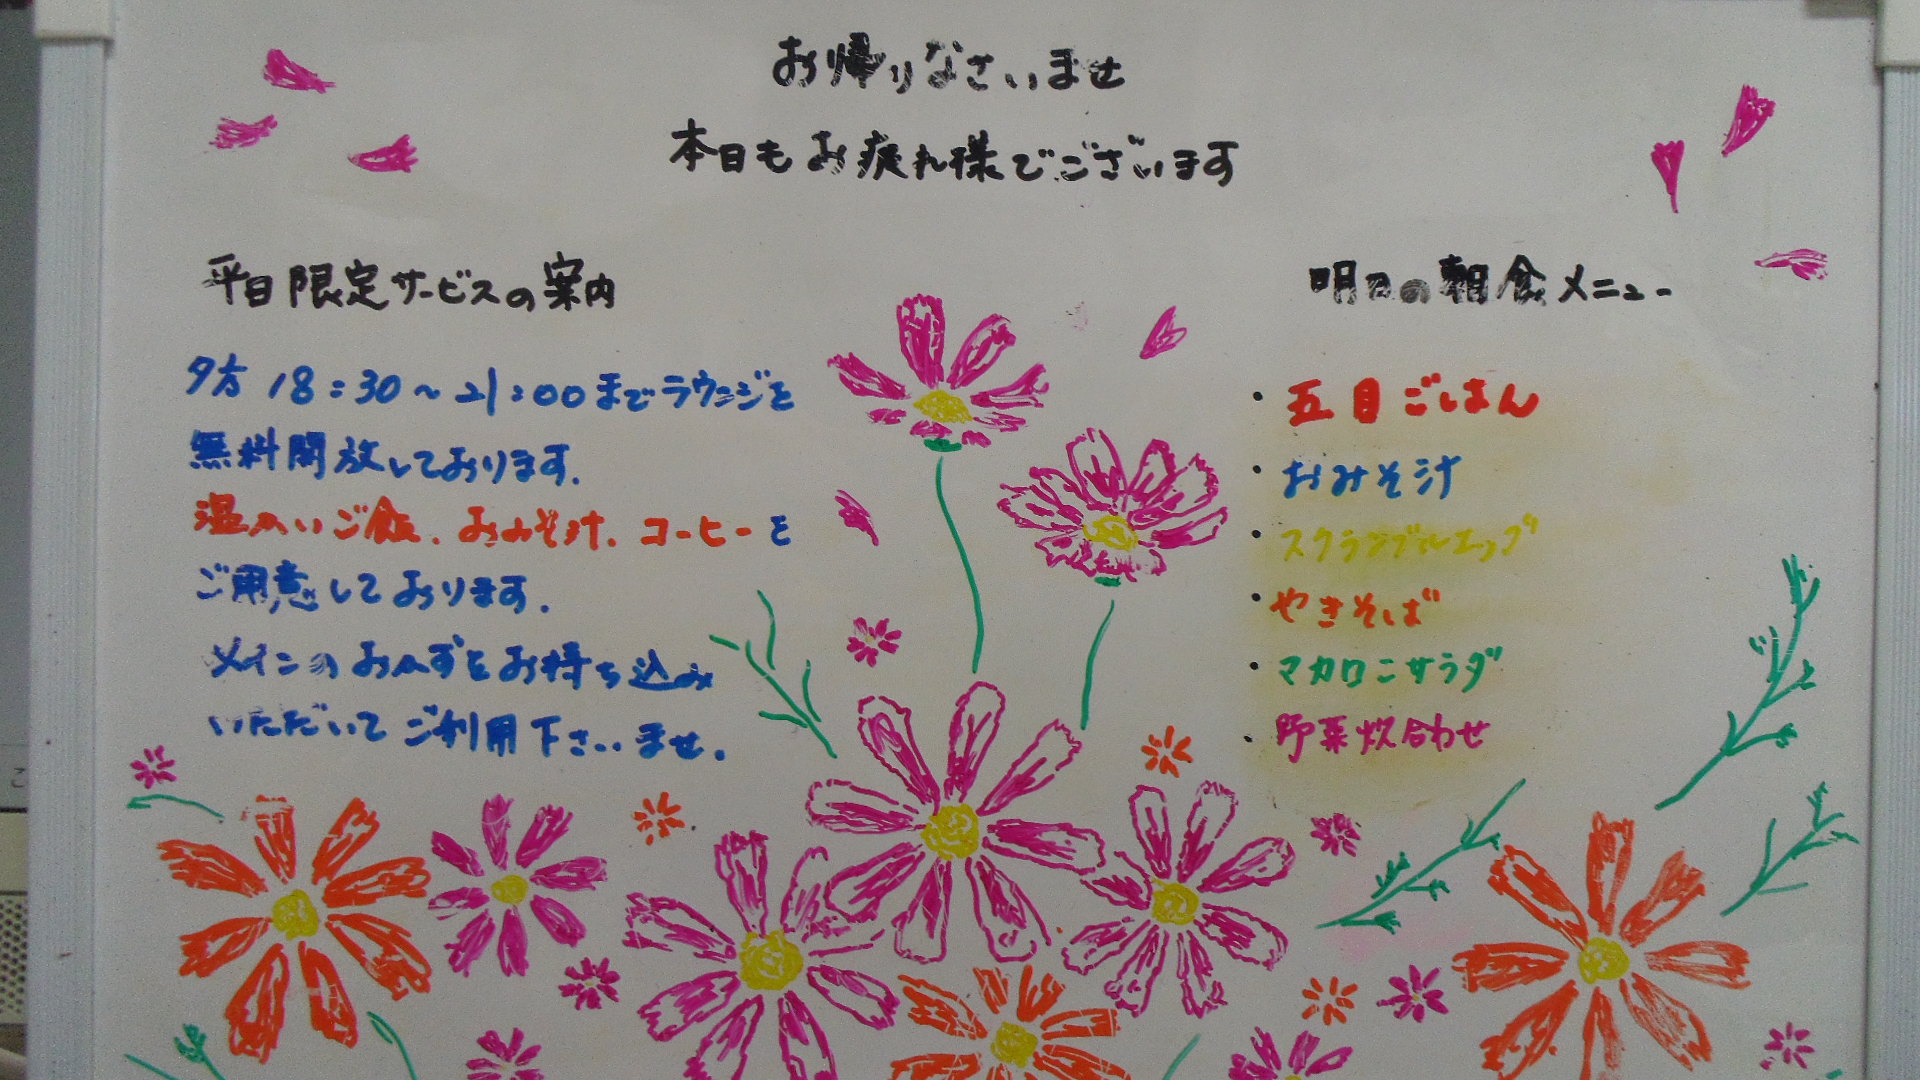 お帰りなさいませ
本日もお疲れ様でございます
平日限定サービスの案内
夕方 18:30~21:00までラウンジを
無料開放しております.
温かいご飯.おみそ汁.コーヒーを
ご用意しております.
メインのおかずをお持ち込み
いただいてご利用下さいませ.
明日の朝食メニュー
・五目ごはん
・おみそ汁
・スクランブルエッグ
・やきそば
・マカロニサラダ
・野菜炊合わせ